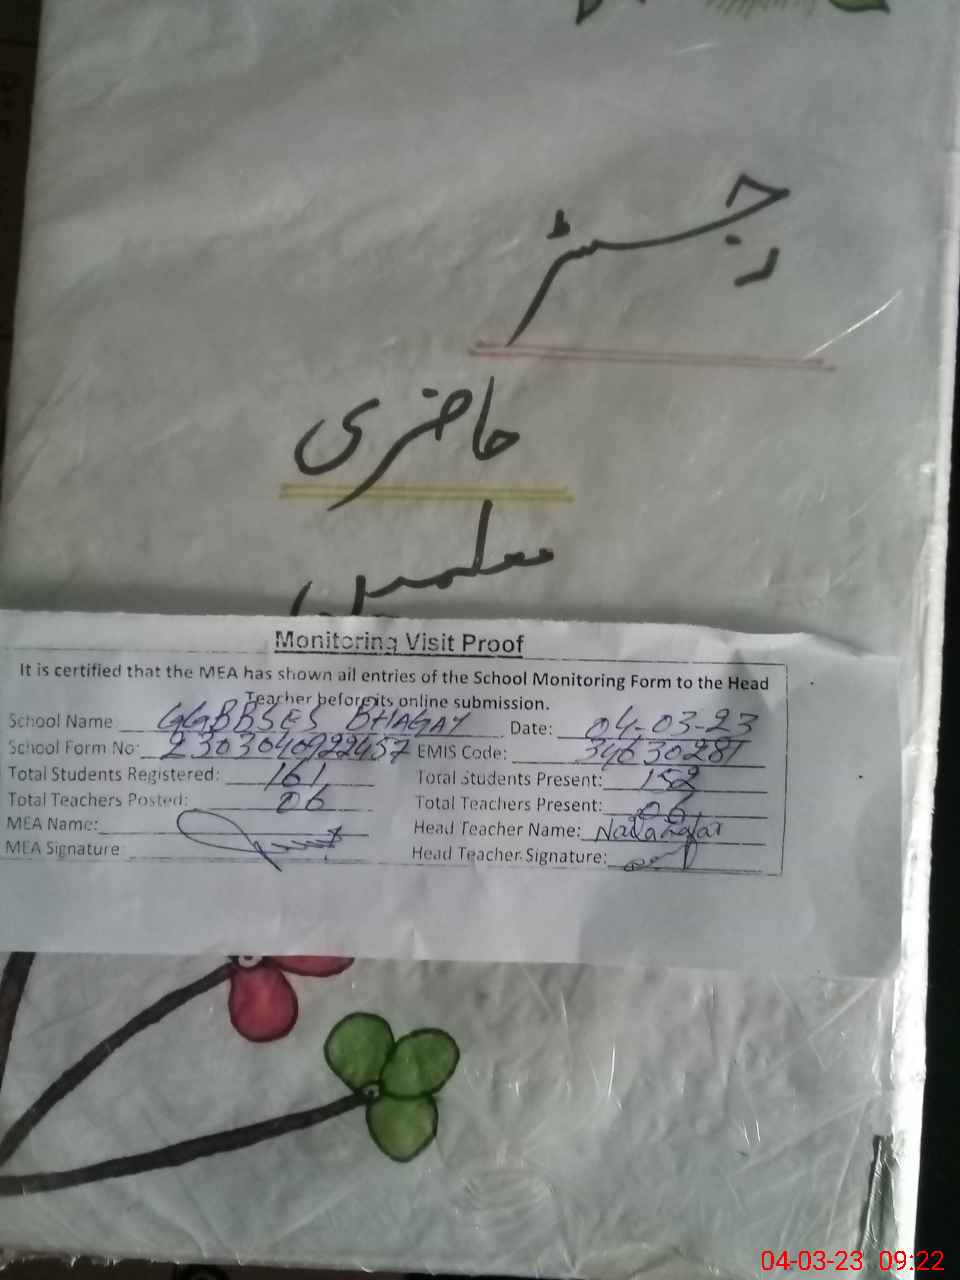 رجسٹر
حاضری
معلمین
Monitoring Visit Proof
It is certified that the MEA has shown all entries of the School Monitoring Form to the Head
Teacher before its online submission.
School Name GGBBSES BHAGAY Date: 04-03-23
School Form No: 2303040922457 EMIS Code: 34630281
Total Students Registered: 161 Total Students Present: 152
Total Teachers Posted: 06 Total Teachers Present: 06
MEA Name: Head Teacher Name:
MEA Signature: Head Teacher Signature:
04-03-23 09:22